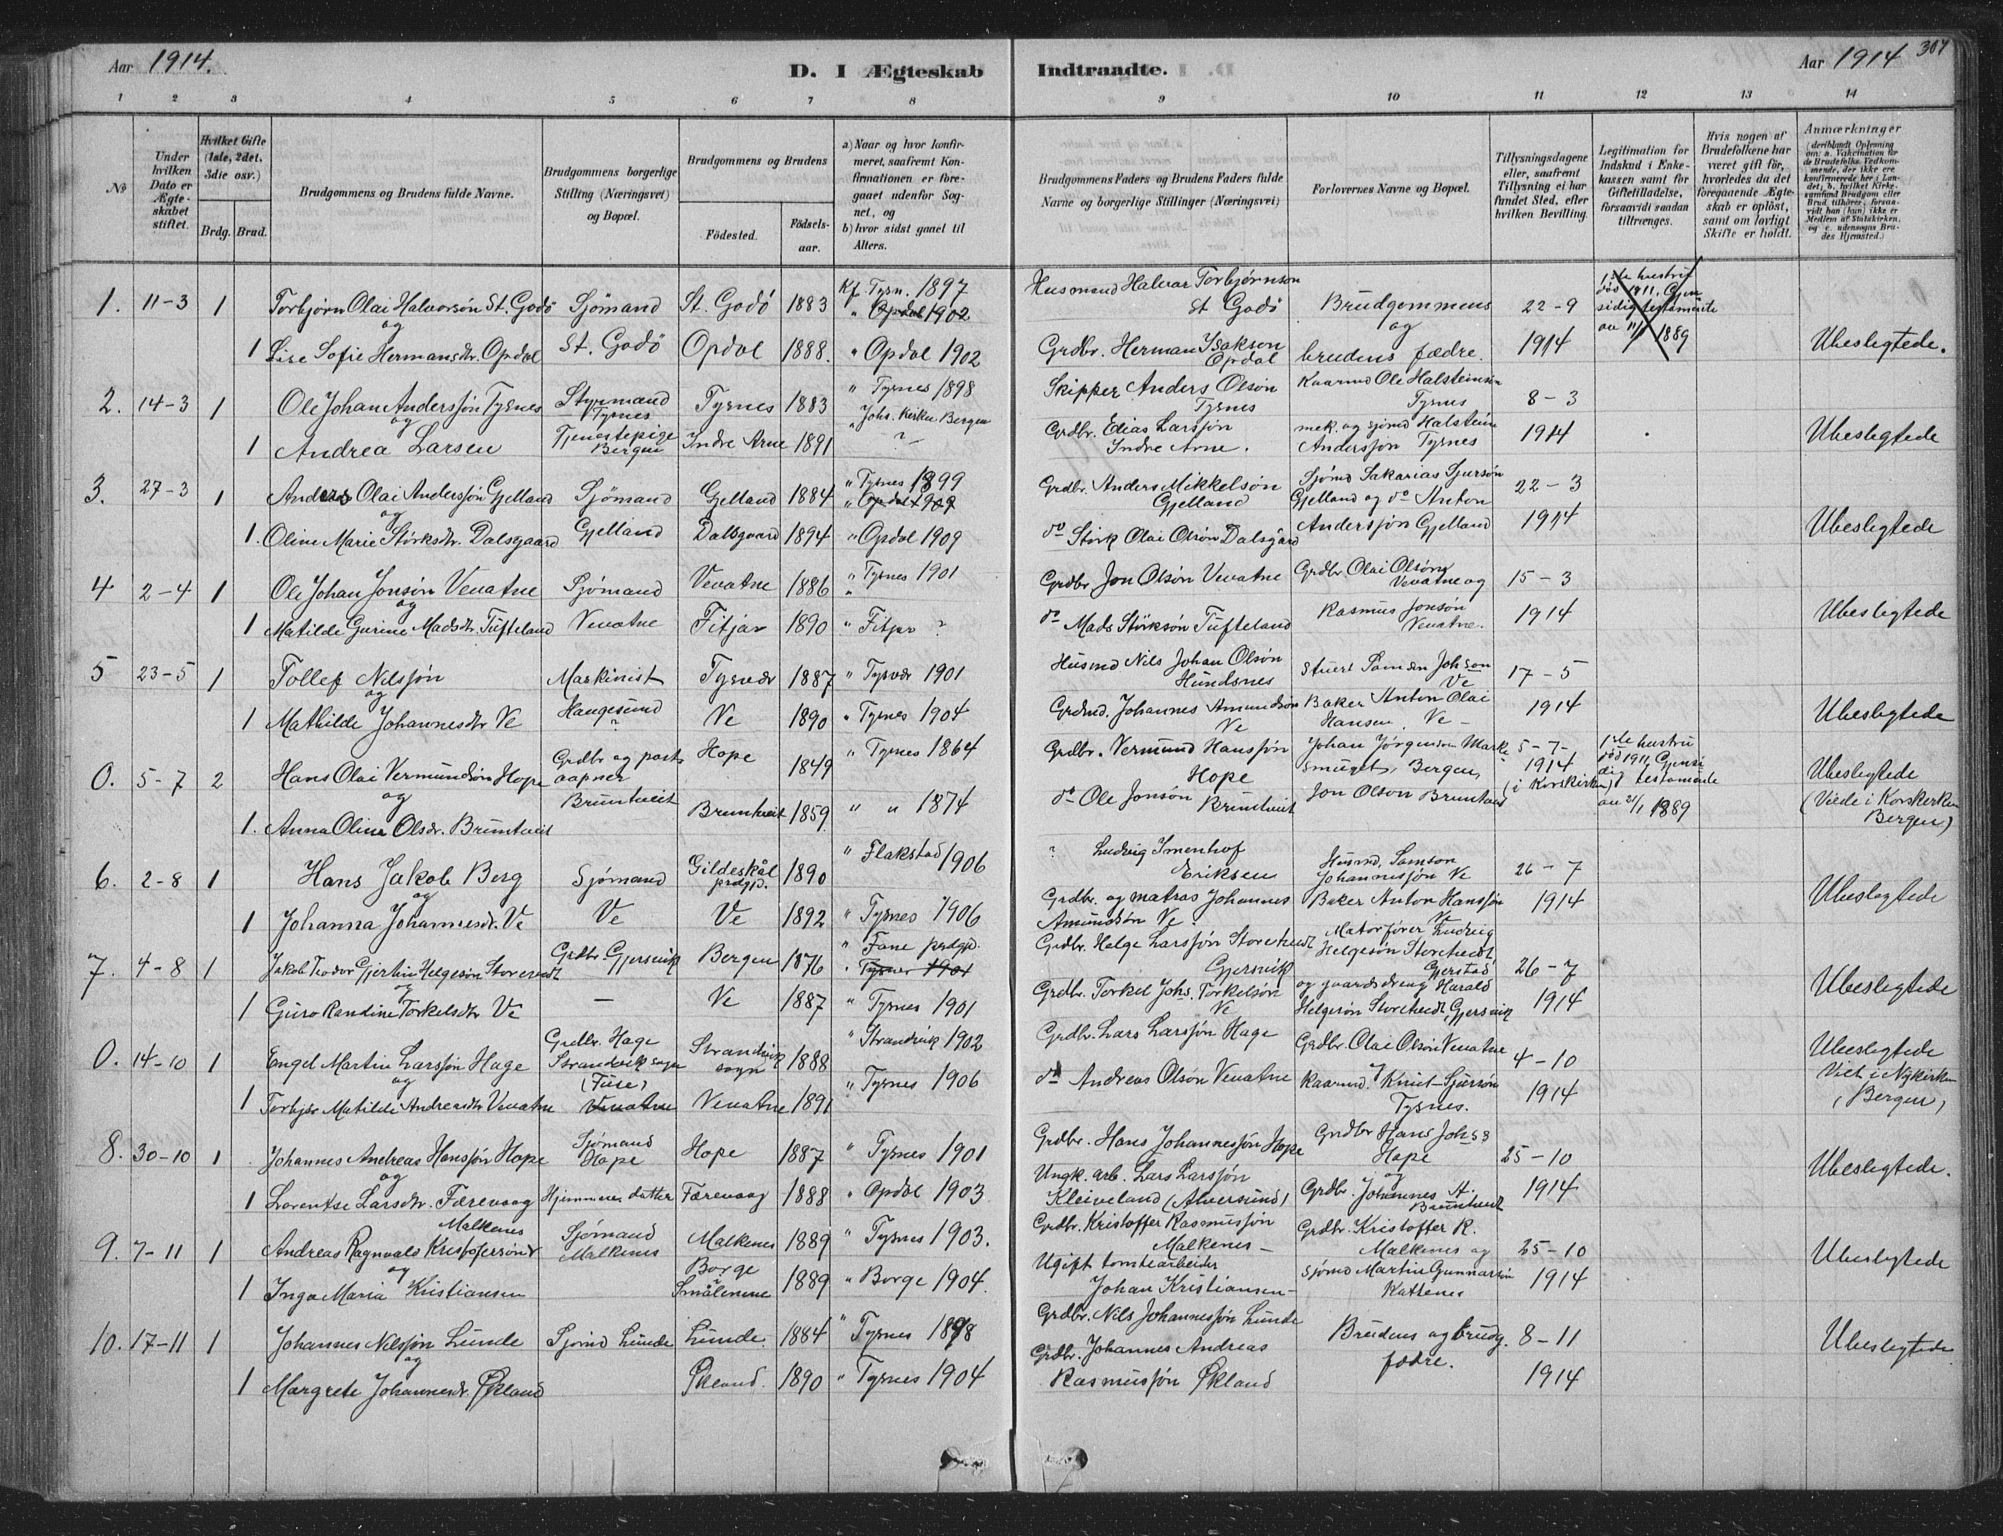 Aar 1914.
D. I Ægteskab Indtraadte.
Aar 1914 307
1 2 3 4 5 6 7 8 9 10 11 12 13 14
№
Under hvilken Dato er Ægteskabet stiftet.
Hvilket Gifte (1ste, 2det, 3die osv.)
Brdg. Brud.
Brudgommens og Brudens fulde Navne.
Brudgommens borgerlige Stilling (Næringsvei) og Bopæl.
Brudgommens og Brudens
Födested. Födselsaar.
a) Naar og hvor konfirmeret, saafremt Konfirmationen er foregaaet udenfor Sognet, og
b) hvor sidst gaaet til Alters.
Brudgommens Faders og Brudens Faders fulde Navne og borgerlige Stillinger (Næringsvei)
Forlovernes Navne og Bopæl.
Tillysningsdagene eller, saafremt Tillysning ei har fundet Sted, efter hvilken Bevilling.
Legitimation for Indskud i Enkekassen samt for Giftetilladelse, forsaavidt saadan tiltrænges.
Hvis nogen af Brudefolkene har været gift för, hvorledes da det foregaaende Ægteskab er oplöst, samt om lovligt Skifte er holdt.
Anmærkninger
(deriblandt Oplysning om: a. Vakcination för de Brudefolks. Vedkommende, der ikke ere konfirmerede her i Landet; b. hvilket Kirkesamfund Brudgom eller Brud tilhörer, forsaavidt han (hun) ikke er Medlem af Statskirken, og c. udensogns Brudes Hjemsted.)
1. 11-3 1 Torbjørn Olai Halvorsön St. Godö Sjømand St. Godö 1883 Kf. Tysn. 1897 Husmand Halvor Torbjørnson St Godö Brudgommens 22-9 1ste hustru död 1911, Gjensidig testamente
og " Opdal 1902 og av 11/1 1889
1 Lise Sofie Hermansdtr. Opdal St. Godö Opdal 1888. " Opdal 1902 Grdbr. Herman Isakson Opdal brudens fædre. 1914 Ubeslegtede.
2. 14-3 1 Ole Johan Andersson Tysnes Styrmand Tysnes Tysnes 1883 " Tysnes 1898 Skipper Anders Olsön Tysnes Kaarmd Ole Halsteinsön Tysnes 8-3
og " Johs. Kirken Bergen
1 Andrea Larsen Tjenestepige Bergen Indre Arne 1891 ? Grdbr. Elias Larsjön Indre Arne. mek. og sjømd Halstein Andersjön Tysnes 1914 Ubeslegtede
3. 27-3 1 Anders Olai Andersjön Gjelland Sjömand Gjelland 1884 " Tysnes 1899 Grdbr. Anders Mikkelsön Gjelland Sjømd Sakarias Sjursön Gjelland og do Anton 22-3
og " Opdal 1909
1. Oline Marie Störksdtr. Dalsgaard Gjelland Dalsgaard 1894 " Opdal 1909 do Störk Olai Olsön Dalsgård Andersjön Gjelland 1914 Ubeslegtede
4 2-4 1 Ole Johan Jonsön Vevatne Sjømand Vevatne 1886 " Tysnes 1901 Grdbr Jon Olsön Vevatne Grdbr Olai Olsön Vevatne og 15-3
og "
1 Matilde Gurine Madsdtr. Tufteland Vevatne Fitjar 1890 " Fitjar ? do Mads Störksön Tufteland Rasmus Jonsön Vevatne. 1914 Ubeslegtede
5 23-5 1 Tollef Nilsjön Maskinist Tysvær 1887 " Tysvær 1901 Husmd Nils Johan Olsön Hundsnes Stuert Samson Johson Ve 17-5
og
1 Mathilde Johannesdtr Ve Haugesund ? Ve 1890 " Tysnes 1904 Grdmd. Johannes Amundsön Ve Baker Anton Olai Hansen. Ve- 1914 Ubeslegtede
0. 5-7 2 Hans Olai Vermundsön Hope Grdbr og postaapner Hope 1849 " Tysnes 1864 Grdbr. Vermund Hansjön Hope Johan Jörgensen Bergen, 5-7-1914 1ste hustru död 1911, Gjensidig testamente
og Bruntveit (i Korskirken) av 21/1 1889
1. Anna Oline Olsdr. Bruntveit Bruntveit 1859. " " 1874 do Ole Jonsön Bruntveit Jon Olson Bruntveit Ubeslegtede (Viede i Korskirken Bergen)
6. 2-8 1 Hans Jakob Berg Sjømand Gildeskål prdgj. 1890 " Flakstad 1906 ? Ludvig Eriksen Husmd. Samson Johannesjön Ve 26-7
og
1 Johanna Johannesdtr. Ve Ve Ve 1892 " Tysnes 1906 Grdbr. og matros Johannes Amundsön Ve Baker Anton Hansjön Ve 1914 Ubeslegtede
7. 4-8 1 Jakob Teodor Gjertin Helgesön Storetvedt Grdbr. Gjersvik Bergen 1876 " Fane prdgj. Grdbr. Helge Larsjön Storetvedt Gjersvik Motorfører Ludvig Helgesön Storetvedt Gjerstad 26-7
og " Tysnes 1901
1 Guro Randine Torkelsdtr Ve — Ve 1887 " Tysnes 1901 Grdbr. Torkel Johs. Torkelsön Ve og gaardsdreng Harald Helgesön Storetvedt, Gjersvik 1914 Ubeslegtede
0. 14-10 1 Engel Martin Larsjön Hage Grdbr. Hage Strandvik sogn (Fuse) Strandvik sogn 1888 " Strandvik 1902 Grdbr. Lars Larsjön Hage Grdbr. Olai Olsön Vevatne 4-10 Ubeslegtede Viet i Nykirken (Bergen)
og
1 Torbjør Matilde Andreasdtr Vevatne Vevatne Vevatne 1891 " Tysnes 1906 do Andreas Olsön Vevatne Kaarmd. Knut Sjursön Tysnes. 1914
8. 30-10 1 Johannes Andreas Hansjön Hope Sjømand Hope Hope 1887 " Tysnes 1901 Grdbr. Hans Johannesjön Hope Grdbr Hans Johss Hope 25-10
og og
1 Lorentse Larsdtr. Færevaag Hjemmenes datter Færevaag 1888 " Opdal 1903 Ungk. arb. Lars Larsjön Kleiveland (Alversund) Grdbr. Johannes A. Bruntveit 1914 Ubeslegtede.
9. 7-11 1 Andreas Ragnvald Kristofersön Malkenes Sjømand Malkenes Malkenes 1889 " Tysnes 1903. Grdbr. Kristoffer Rasmusjön Malkenes- Grdbr. Kristoffer R. Malkenes og 25-10
og
1 Inga Maria Kristiansen Borge Smålenene 1889 " Borge 1904. Ugift tomtearbeider Johan Kristiansen- Sjømd Martin Gunnarsön Kattenes 1914 Ubeslegtede
10. 17-11 1 Johannes Nilsjön Lunde Sjømd Lunde Lunde. 1884 " Tysnes 1898 Grdbr. Nils Johannesjön Lunde Brudens og brudg. 8-11
og
1 Margrete Johannesdr. Økland Økland. 1890 " Tysnes 1904 Grdbr. Johannes Andreas Rasmusjön Økland fædre. 1914 Ubeslegtede